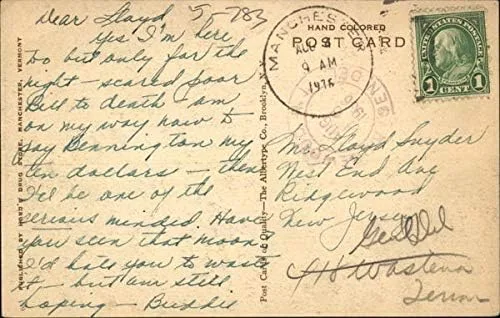 Dear Lloyd
5/783
Yes I'm here
too but only for the
night - scared poor
Bill to death - am
on my way now to
pay Bennington my
ten dollars - then
I'll be one of the
serious minded. Have
you seen that moon
I'd hate you to waste
it - but am still
hoping - Buddie
PUBLISHED BY HARD'S DRUG STORE, MANCHESTER, VERMONT
Post Cards of Quality. - The Albertype Co., Brooklyn, N.Y.
HAND COLORED
POST CARD
MANCHESTER
AUG
9 AM
UNITED STATES POSTAGE
FRANKLIN
1 CENT 1
Mr. Lloyd Snyder
West End Ave
Ridgewood
New Jersey
Gen Del